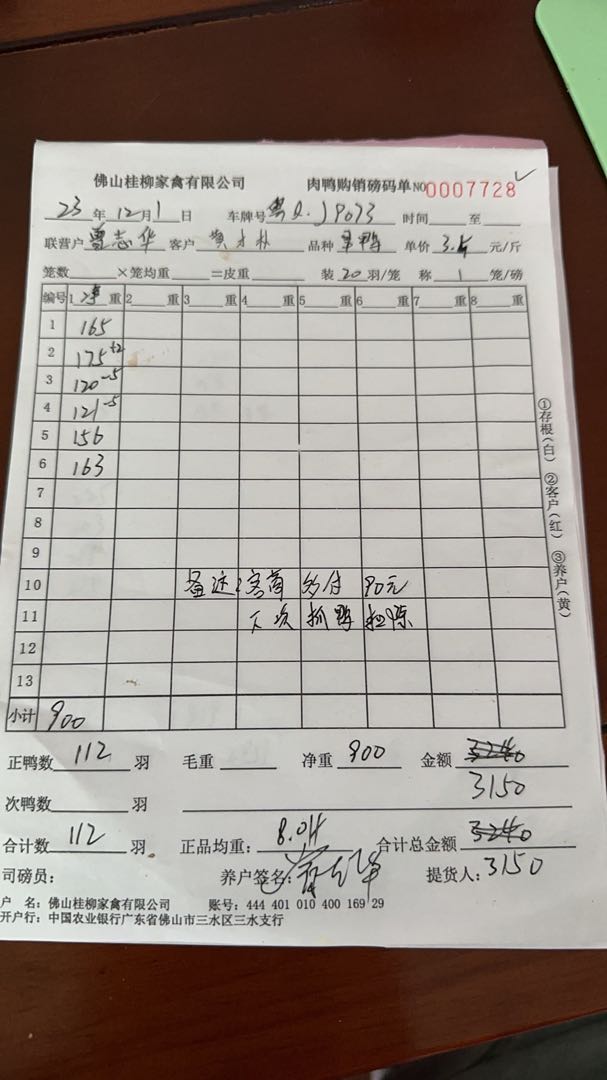 佛山桂柳家禽有限公司 肉鸭购销磅码单 NO 0007728
23 年 12 月 1 日 车牌号 时间 至
联营户 曹志华 客户 黄才朴 品种 单价 3.5 元/斤
笼数 ×笼均重 =皮重 装 20 羽/笼 称 1 笼/磅
编号 1 净 重 2 重 3 重 4 重 5 重 6 重 7 重 8 重
1 165
2 175 +2
3 120 -5
4 121 -5
5 156
6 163
7
8
9
10 备注:客商多付 90元
11 下次抓鸭扣除
12
13
小计 900
①存根(白) ②客户(红) ③养户(黄)
正鸭数 112 羽 毛重 净重 900 金额 3240
3150
次鸭数 羽
合计数 112 羽 正品均重: 8.04 合计总金额 3240
司磅员: 养户签名: 提货人: 3150
户 名: 佛山桂柳家禽有限公司 账号: 444 401 010 400 169 29
开户行: 中国农业银行广东省佛山市三水区三水支行